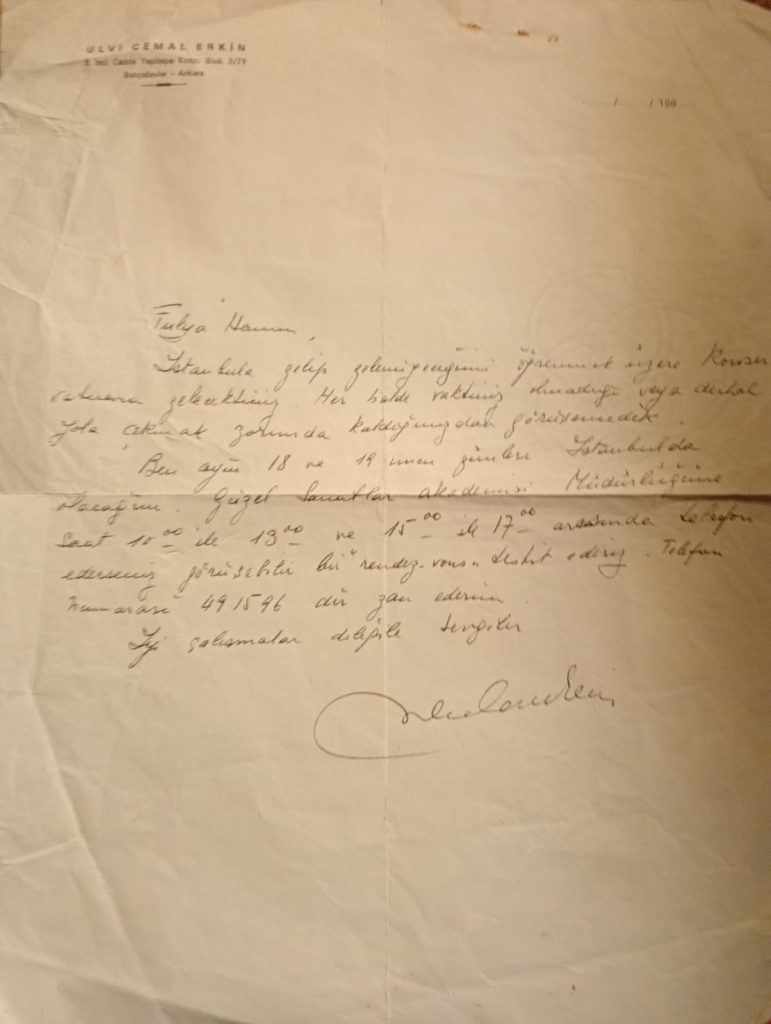 ULVİ CEMAL ERKİN
8 inci Cadde Yeşiltepe Koop. Blok 3/71
Bahçelievler - Ankara
...../...../196....
Fulya Hanım,
İstanbula gelip gelemiyeceğimi öğrenmek üzere Konser
vatuvara gelecektiniz. Her halde vaktiniz olmadığı veya derhal
yola çıkmak zorunda kaldığınızdan görüşemedik.
Ben ayın 18 ve 19 uncu günleri İstanbulda
olacağım. Güzel Sanatlar akademisi Müdürlüğüne
Saat 10 00 ile 13 00 ve 15 00 ile 17 00 arasında telefon
ederseniz görüşebilir bir "rendez-vous" tesbit ederiz. Telefon
numarası 491596 dır zan ederim.
İyi çalışmalar dileğile sevgiler